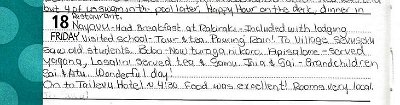 but 4pf swam in the pool later, Happy Hour on the deck, dinner in
Restaurant.
18 Nayavu - Had Breakfast at Rakiraki - Included with lodging
FRIDAY Visited school - Tour & tea. Pouring Rain! To Village
Saw old students. Bobo - Now turaga ni koro, Apisalome - Served
yaqona, Losalini Served tea & Samu. Jina & Sai - Grandchildren
Sai & Atu. Wonderful day!
On to Tailevu Hotel @ 4:30 Food was excellent! Rooms very local